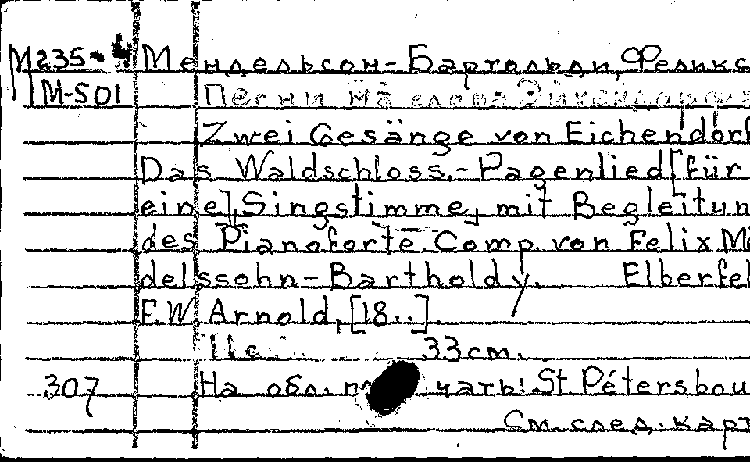 М235-4 Мендельсон-Бартольди, Феликс
М-501 Песни на слова Эйхендорфа
Zwei Gesänge von Eichendorf
Das Waldschloss.-Pagenlied [für
eine] Singstimme, mit Begleitun
des Pianoforte. Comp. von Felix M
delssohn-Bartholdy. Elberfel
F.W. Arnold, [18..].
33 cm.
307 На обл. печать: St. Pétersbou
См. след. карт